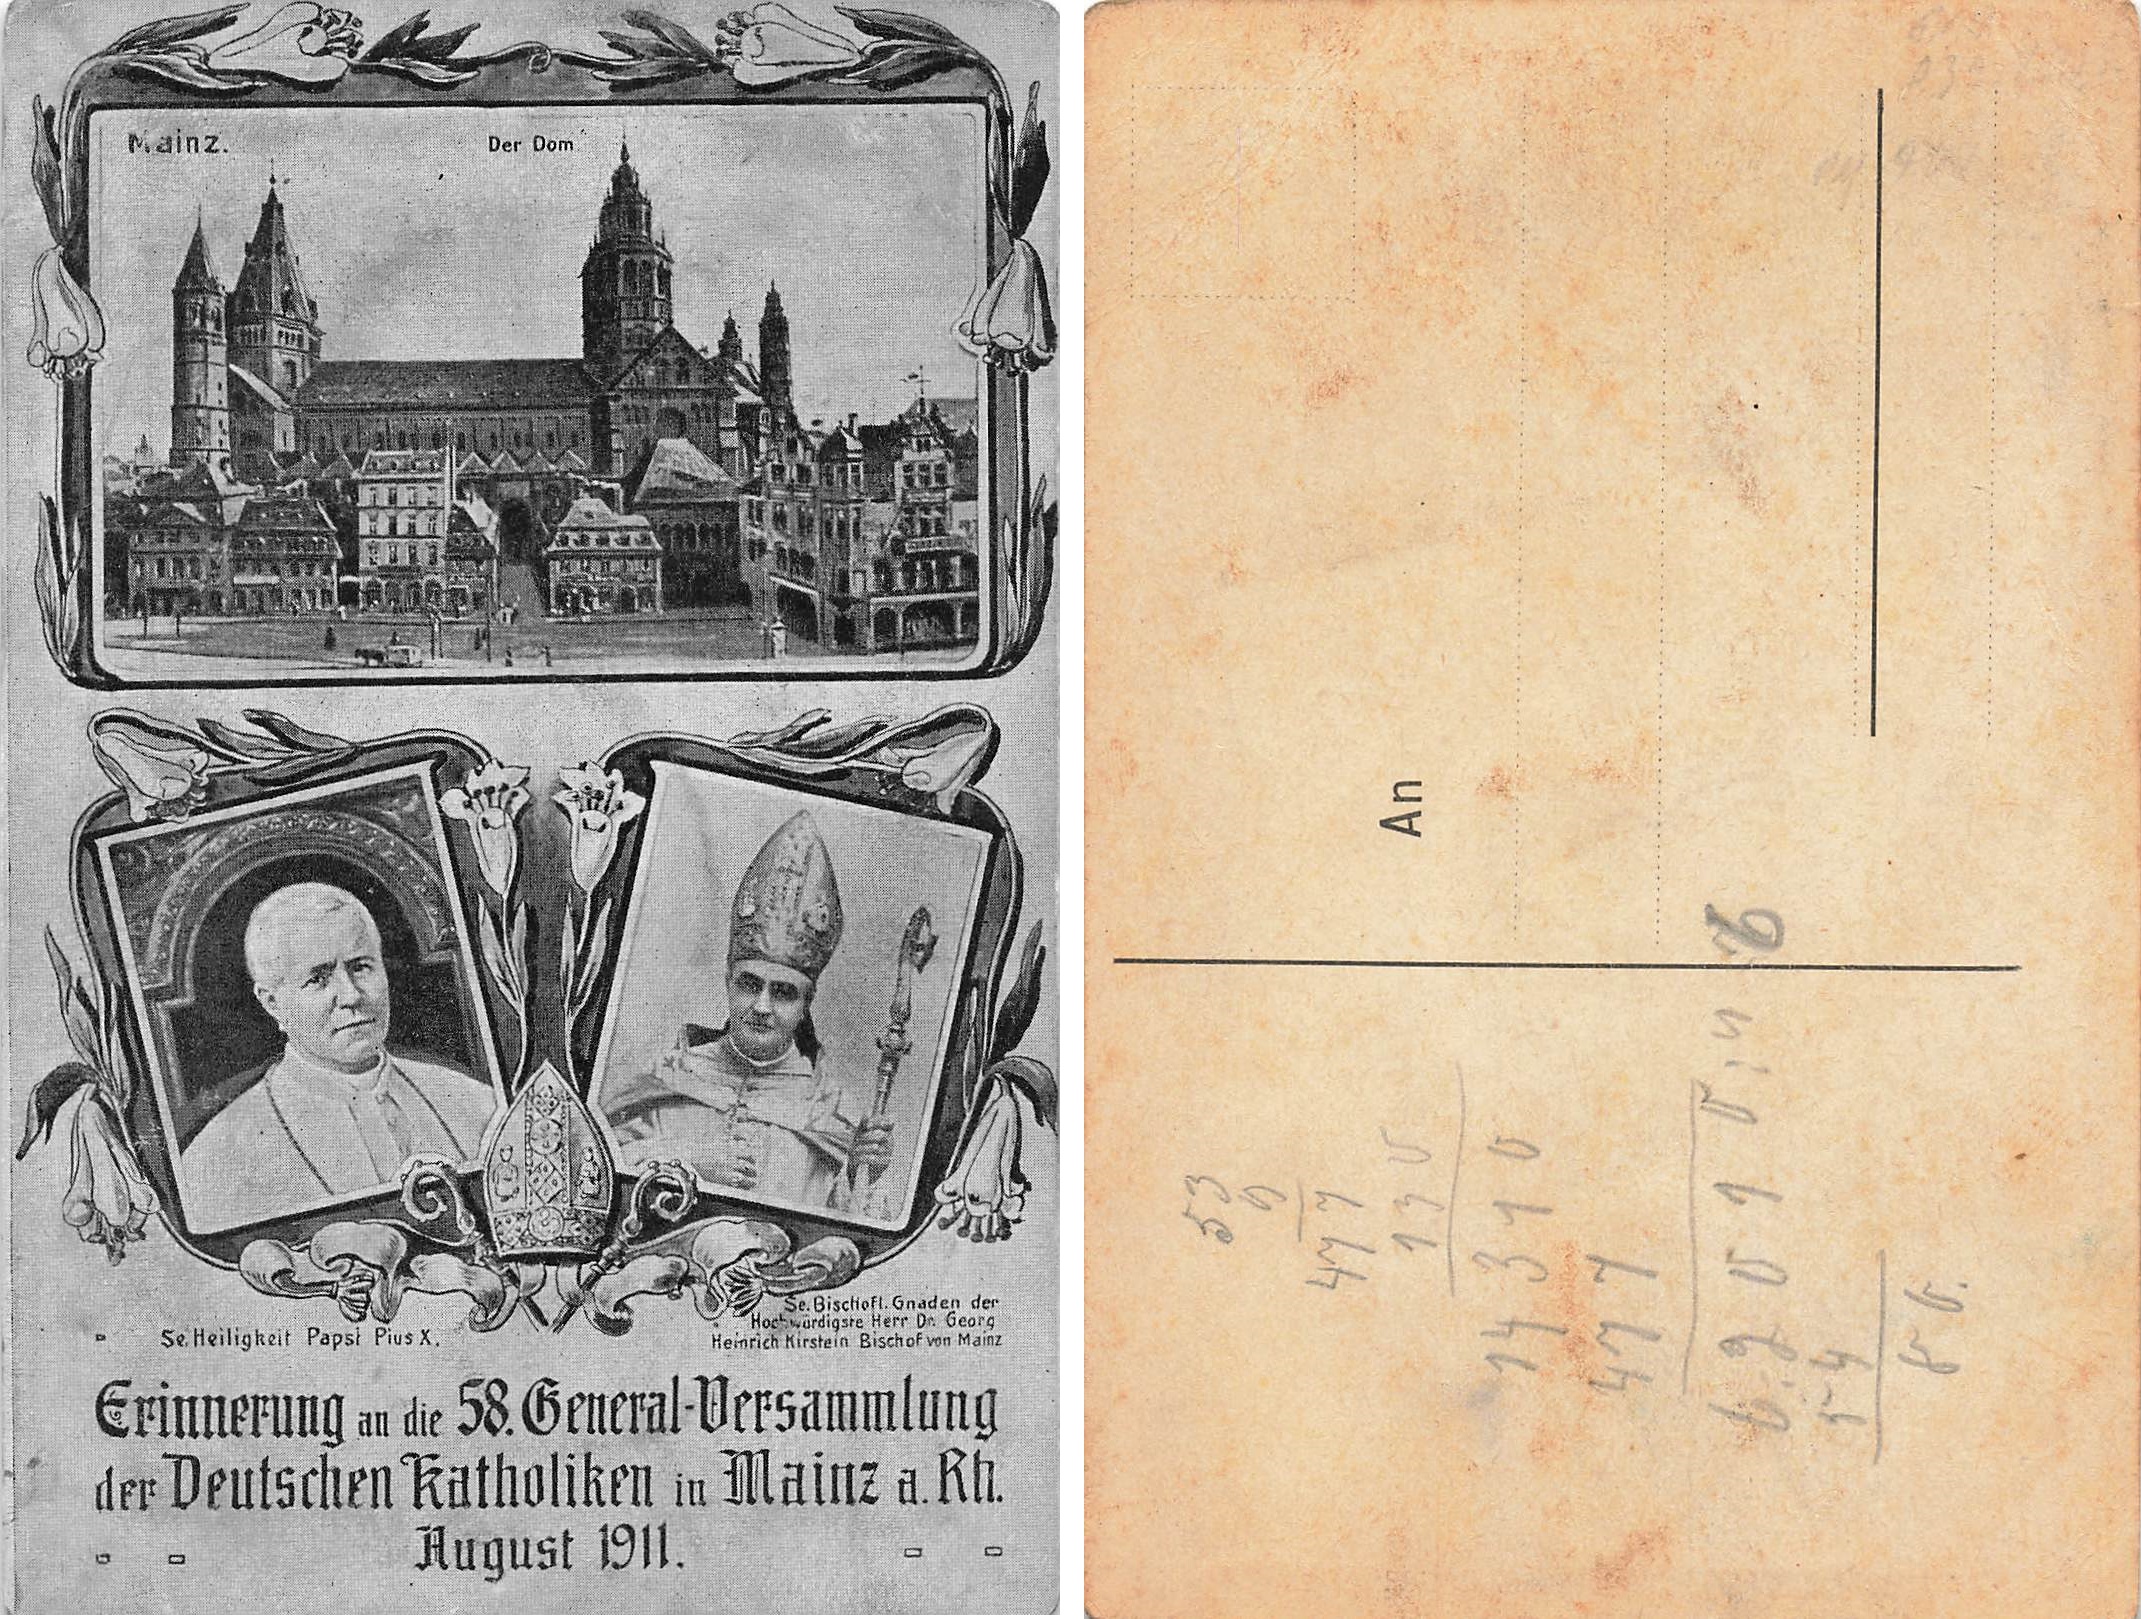 Mainz.
Der Dom
Se. Heiligkeit Papst Pius X.
Se. Bischöfl. Gnaden der
Hochwürdigste Herr Dr. Georg
Heinrich Kirstein Bischof von Mainz
Erinnerung an die 58. General-Versammlung
der Deutschen Katholiken in Mainz a. Rh.
August 1911.
An
53
9
477
130
14310
477